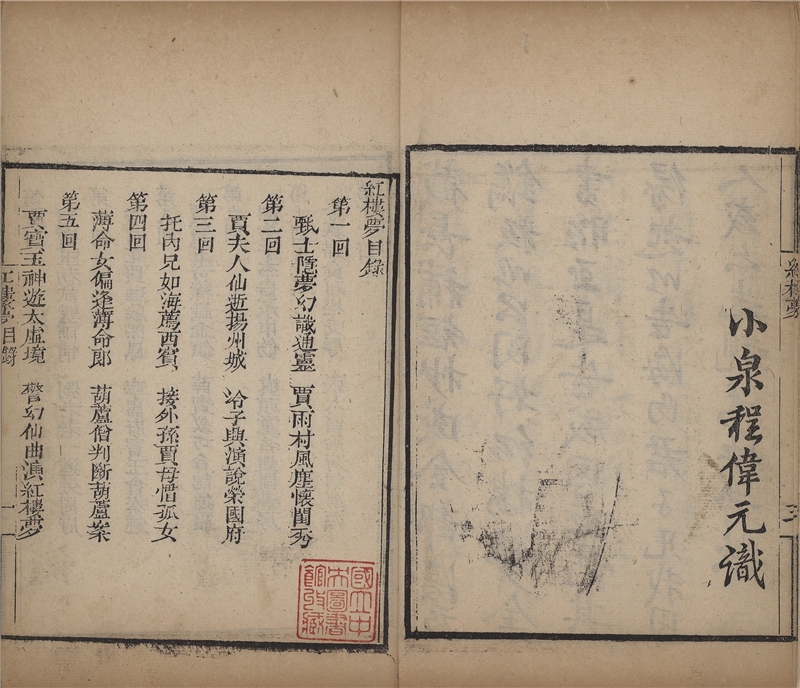 小泉程偉元識
紅樓夢
三
紅樓夢目錄
第一回
甄士隱夢幻識通靈 賈雨村風塵懷閨秀
第二回
賈夫人仙逝揚州城 冷子興演說榮國府
第三回
托內兄如海薦西賓 接外孫賈母惜孤女
第四回
薄命女偏逢薄命郎 葫蘆僧判斷葫蘆案
第五回
賈寶玉神遊太虛境 警幻仙曲演紅樓夢
紅樓夢目錄
一
國立中
央圖書
館收藏